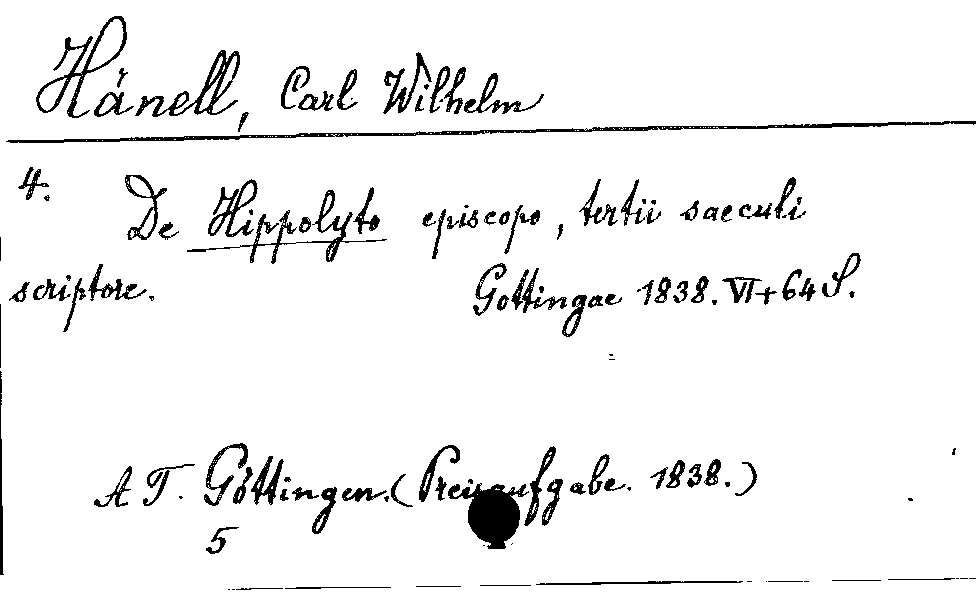 Hänell, Carl Wilhelm
4.
De Hippolyto episcopo, tertii saeculi
scriptore. Gottingae 1838. VI+64 S.
AT. Göttingen. (Preisaufgabe. 1838.)
5